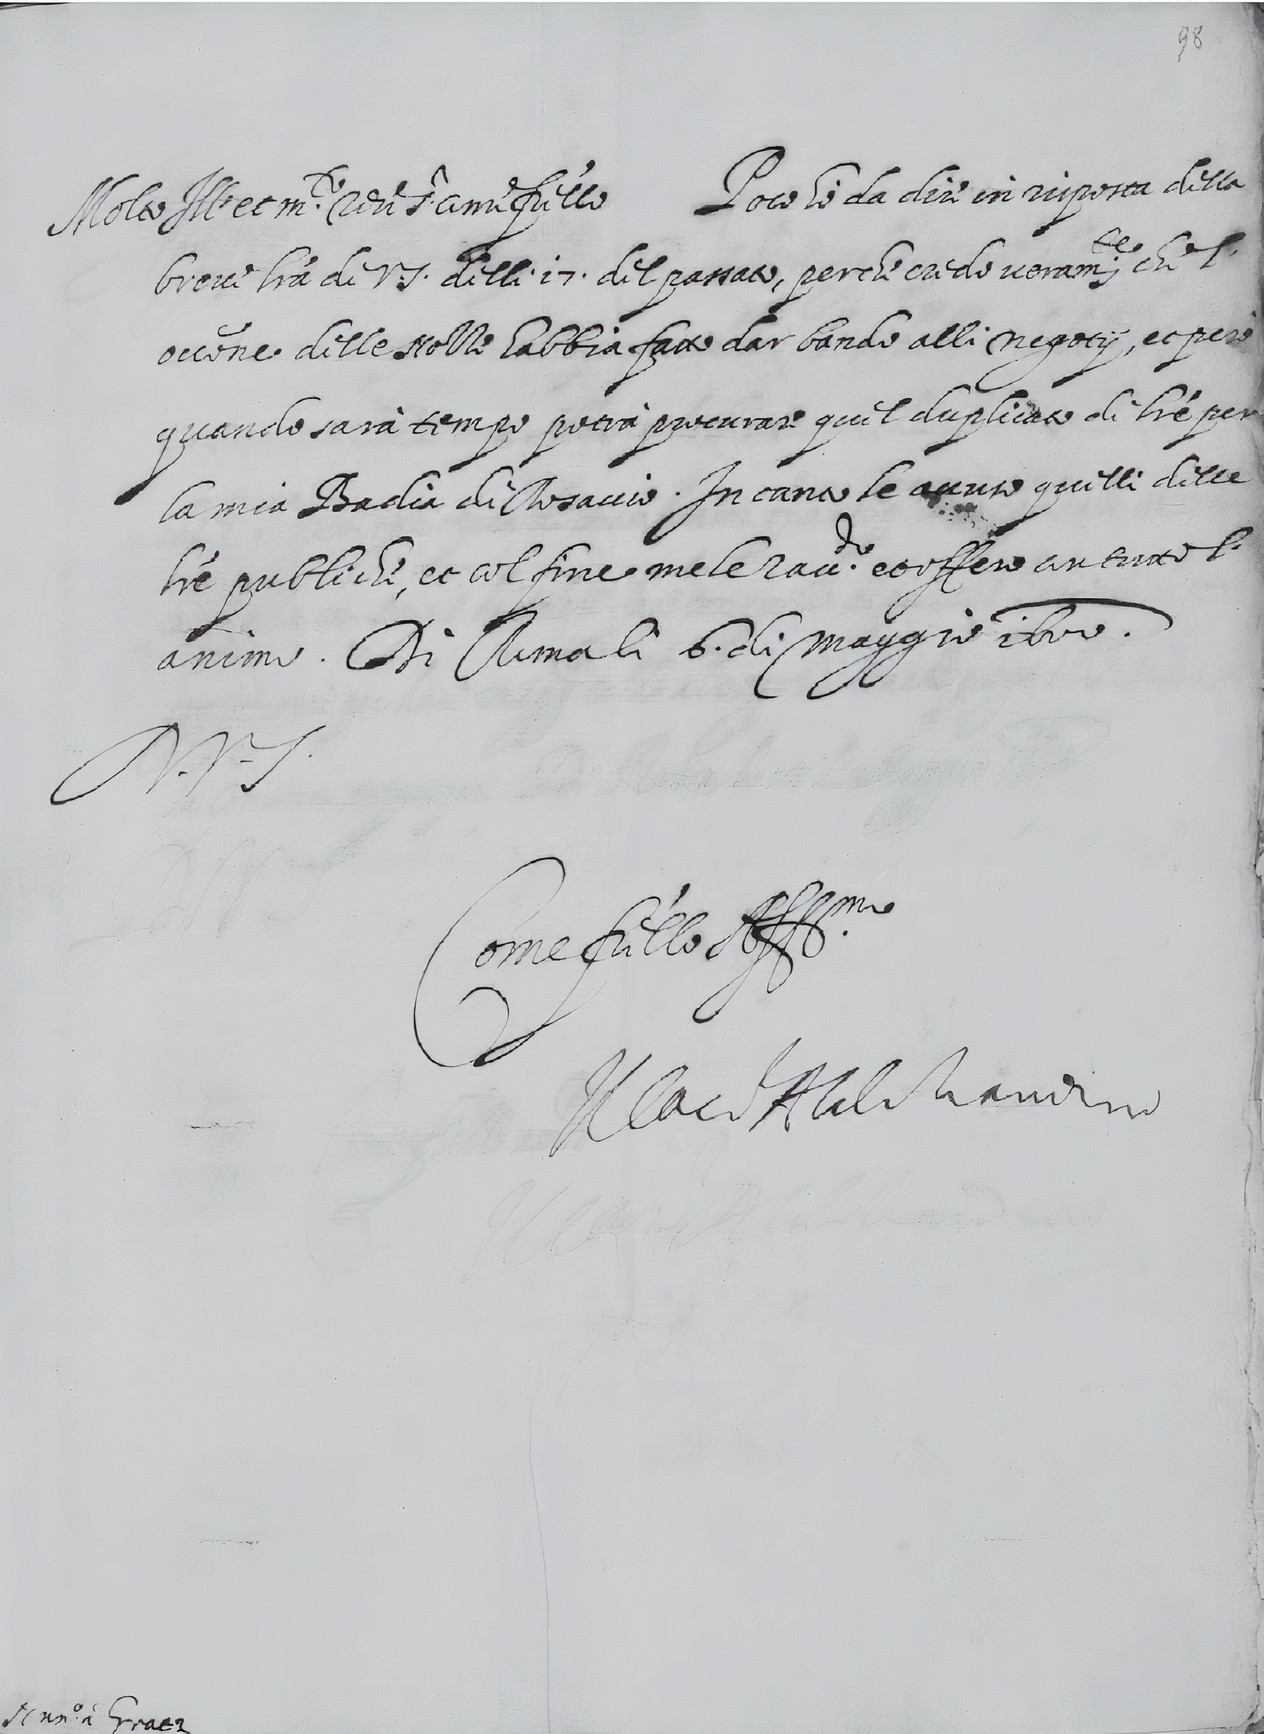 98
Molto Ill.re et m.to Rev.do S.r come fr̃ello Poco hò da dire in risposta della
breve lr̃a di V.S. delli 17. del passato, perche credo veram.te che l'
occõne delle nozze habbia fatto dar bando alli negotij, et però
quando sarà tempo potrà procurare quel duplicato di lr̃e per
la mia Badia di Rosazzo. In tanto le accuso quelli delle
lr̃e publiche, et col fine me le racc.do et offero con tutto l'
animo. Di Roma li 6. di Maggio 1600.
D. V. S.
Come fr̃ello Aff.mo
Il Car.l Aldobrandino
Nun.o à Gratz